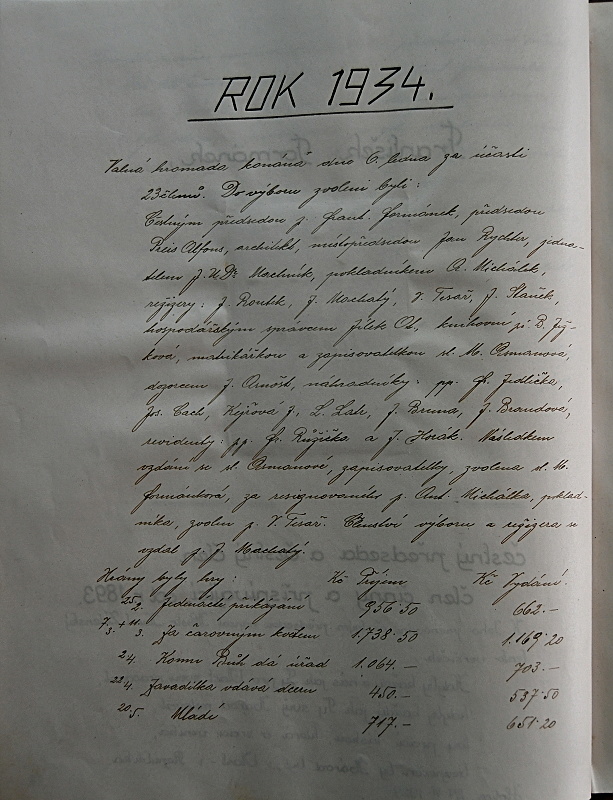 ROK 1934.
Valná hromada konána dne 6. ledna za účasti
23 členů. Do výboru zvoleni byli:
Čestným předsedou p. Frant. Formánek, předsedou
Preis Alfons, architekt, místopředsedou Jan Rychter, jedna-
telem J.U.Dr. Machník, pokladníkem A. Michálek,
režiséry: J. Roubík, J. Machatý, V. Tesař, J. Staněk,
hospodářským správcem Jílek Ot., knihovní sl. B. Jíž-
ková, matrikářkou a zapisovatelkou sl. M. Osmanová,
dozorcem J. Arnošt, náhradníky: pp. Fr. Jedlička,
Jos. Cach, Kejřová J., L. Latr, J. Bruna, J. Brandová,
revidenty: pp. F. Růžička a F. Horák. Následkem
vzdání se sl. Osmanové, zapisovatelky, zvolena sl. M.
Formánková, za resignovaného p. Ant. Michálka, poklad-
níka, zvolen p. V. Tesař. Členství výboru a režiséra se
vzdal p. J. Machatý.
Hrány byly hry: Kč Příjem Kč Vydání.
25./2. Jedenácté přikázání 956·50 662.–
7./3. + 11./3. Za čarovným květem 1.738·50 1.169·20
2./4. Komu Bůh dá úřad 1.064.– 703.–
22./4. Zavadilka vdává dceru 450.– 537·50
20./5. Mládí 717.– 651·20